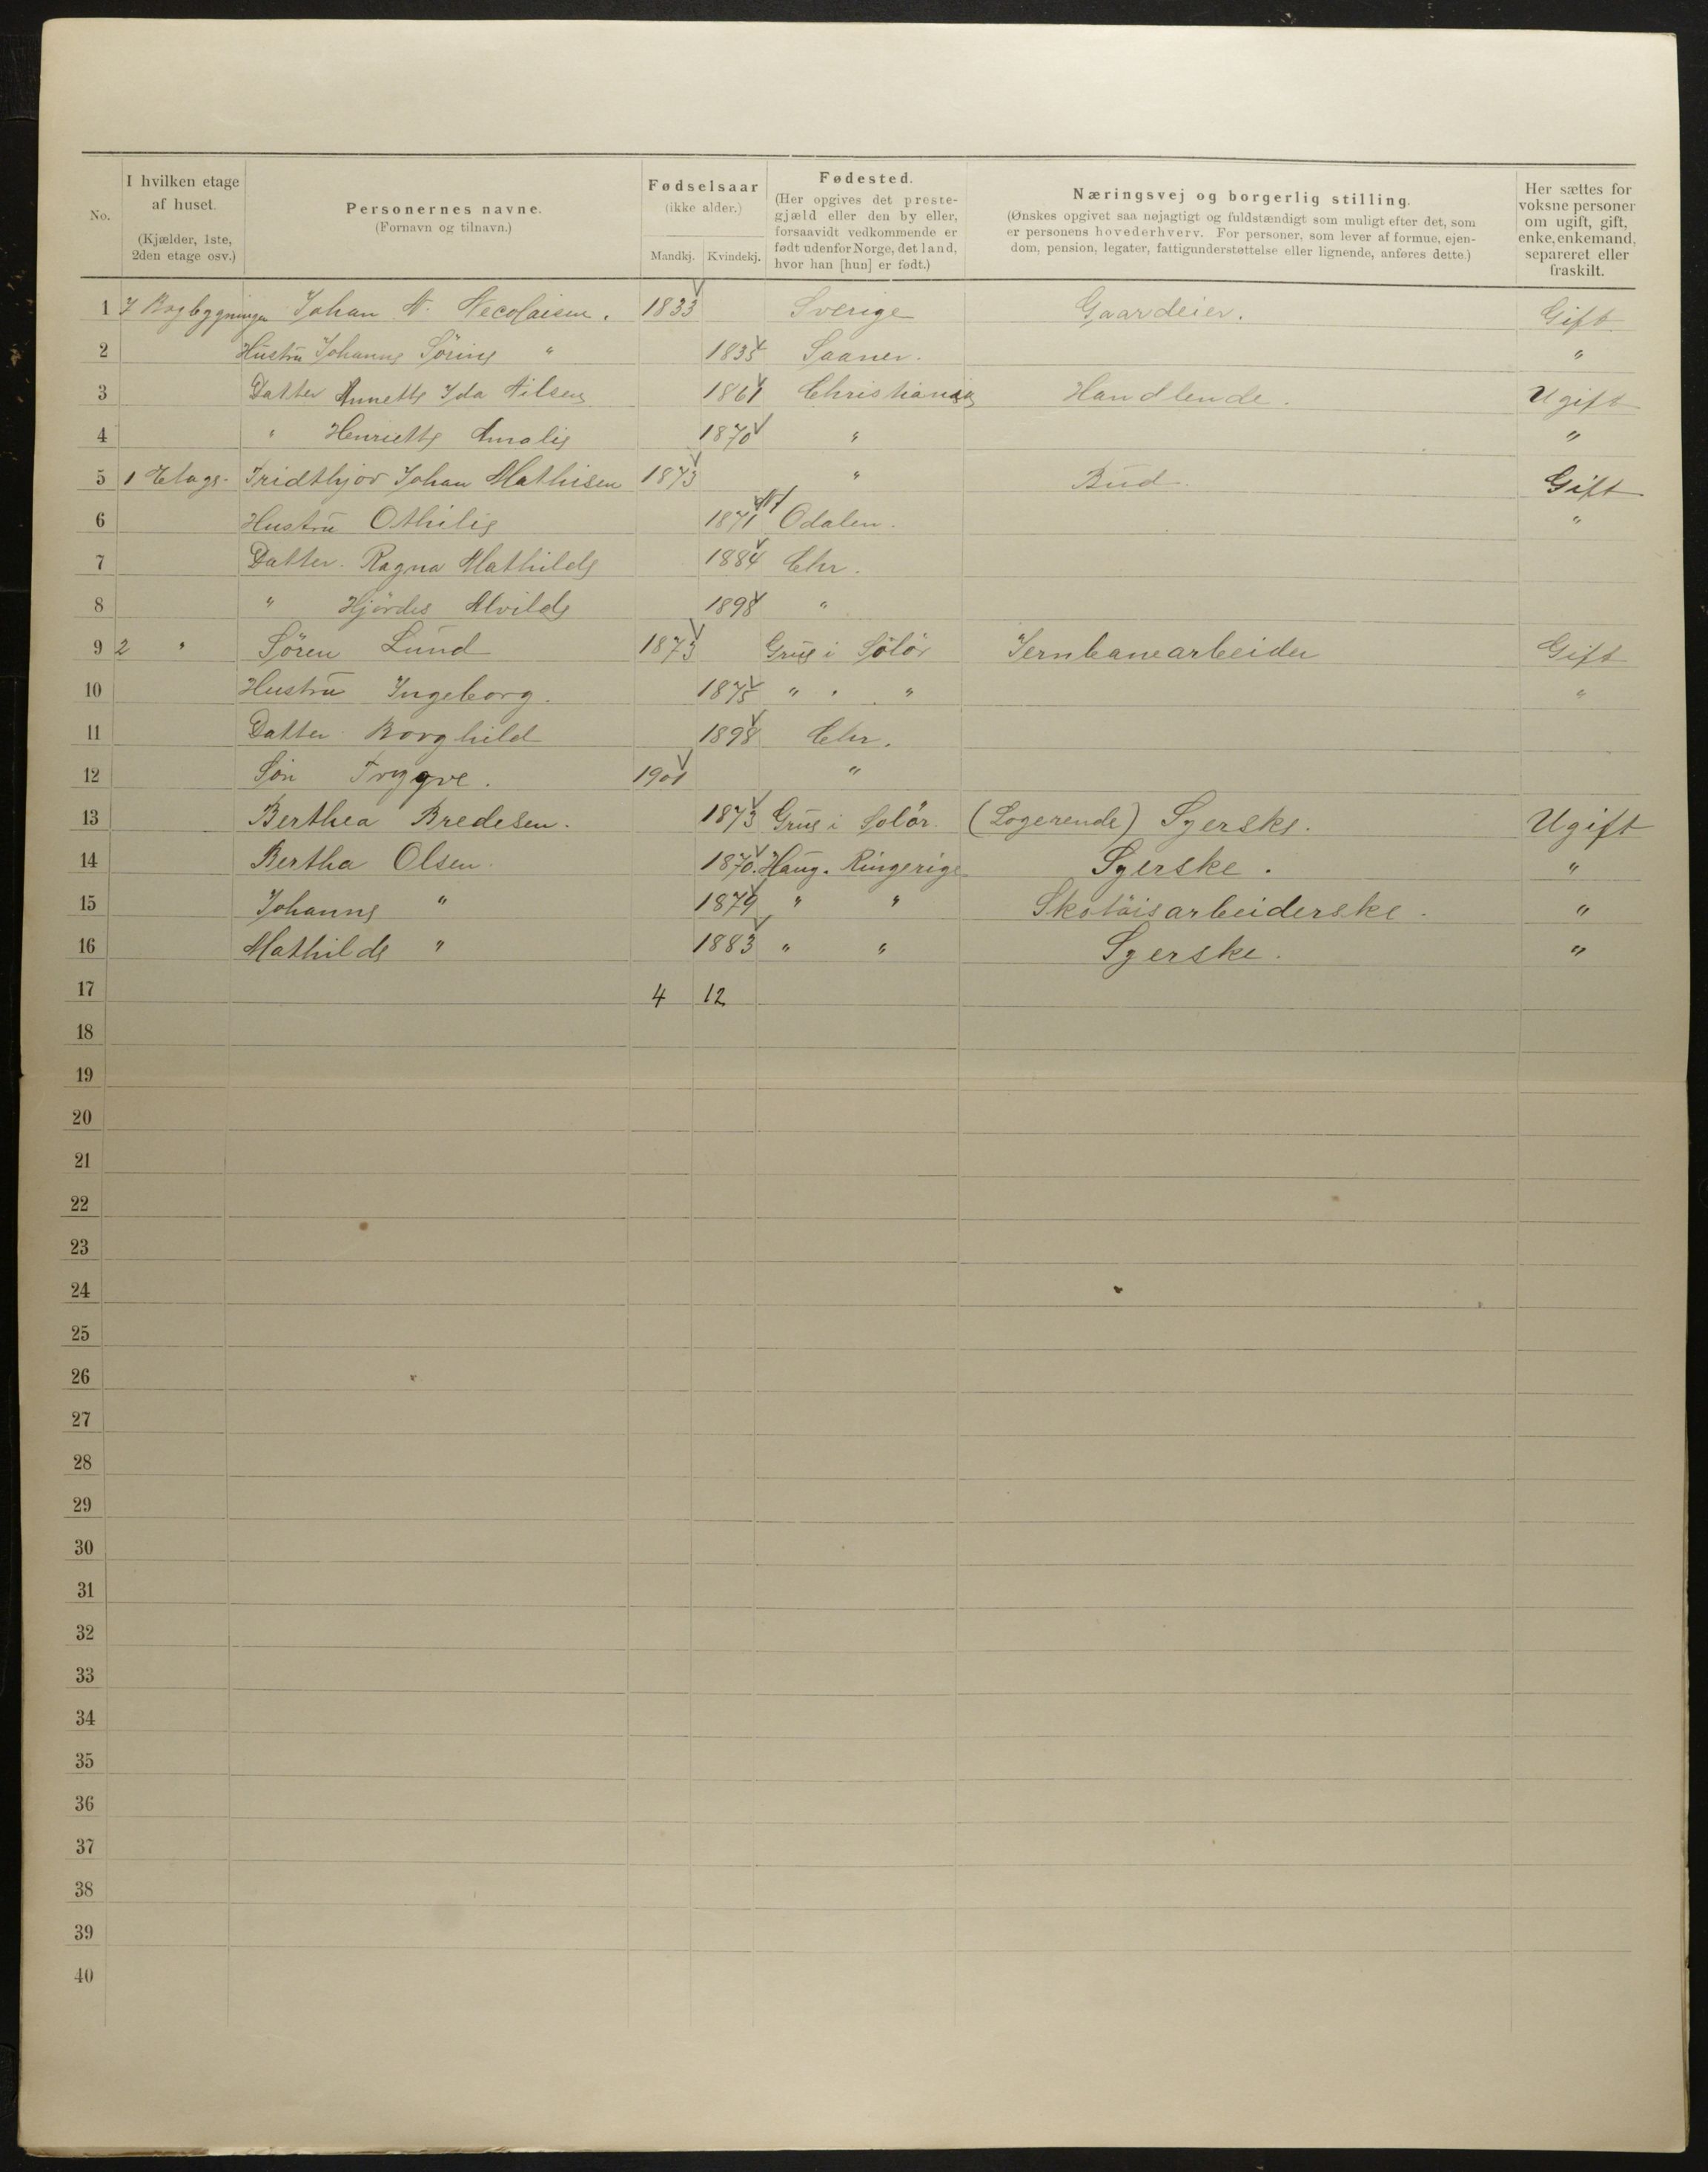 No.
I hvilken etage
af huset.
(Kjælder, 1ste,
2den etage osv.)
Personernes navne.
(Fornavn og tilnavn.)
Fødselsaar
(ikke alder.)
Mandkj. Kvindekj.
Fødested.
(Her opgives det preste-
gjæld eller den by eller,
forsaavidt vedkommende er
født udenfor Norge, det land,
hvor han [hun] er født.)
Næringsvej og borgerlig stilling.
(Ønskes opgivet saa nøjagtigt og fuldstændigt som muligt efter det, som
er personens hovederhverv. For personer, som lever af formue, ejen-
dom, pension, legater, fattigunderstøttelse eller lignende, anføres dette.)
Her sættes for
voksne personer
om ugift, gift,
enke, enkemand,
separeret eller
fraskilt.
1 I Bagbygningen Johan N. Necolaisen. 1833 Sverige Gaardeier. Gift
2 Hustru Johanne Sörine " 1835 Saaner. "
3 Datter Annette Ida Nilsen 1861 Christiania Handlende. Ugift
4 " Henriette Amalie 1870 " "
5 1 Etage. Fridthjov Johan Mathisen 1873 " Bud. Gift
6 Hustru Othilie 1871 Odalen. "
7 Datter. Ragna Mathilde 1884 Chr.
8 " Hjördes Alvilde 1898 "
9 2 " Sören Lund 1873 Grue i Solör Jernbanearbeider Gift
10 Hustru Ingeborg. 1875 " " " "
11 Datter Borghild 1898 Chr.
12 Sön Trygve. 1901 "
13 Berthea Bredesen. 1873 Grue i Solör. (Logerende) Syerske. Ugift
14 Bertha Olsen. 1870. Haug. Ringerige Syerske. "
15 Johanne " 1879 " " Skotöisarbeiderske. "
16 Mathilde " 1883 " " Syerske. "
17 4 12
18
19
20
21
22
23
24
25
26
27
28
29
30
31
32
33
34
35
36
37
38
39
40